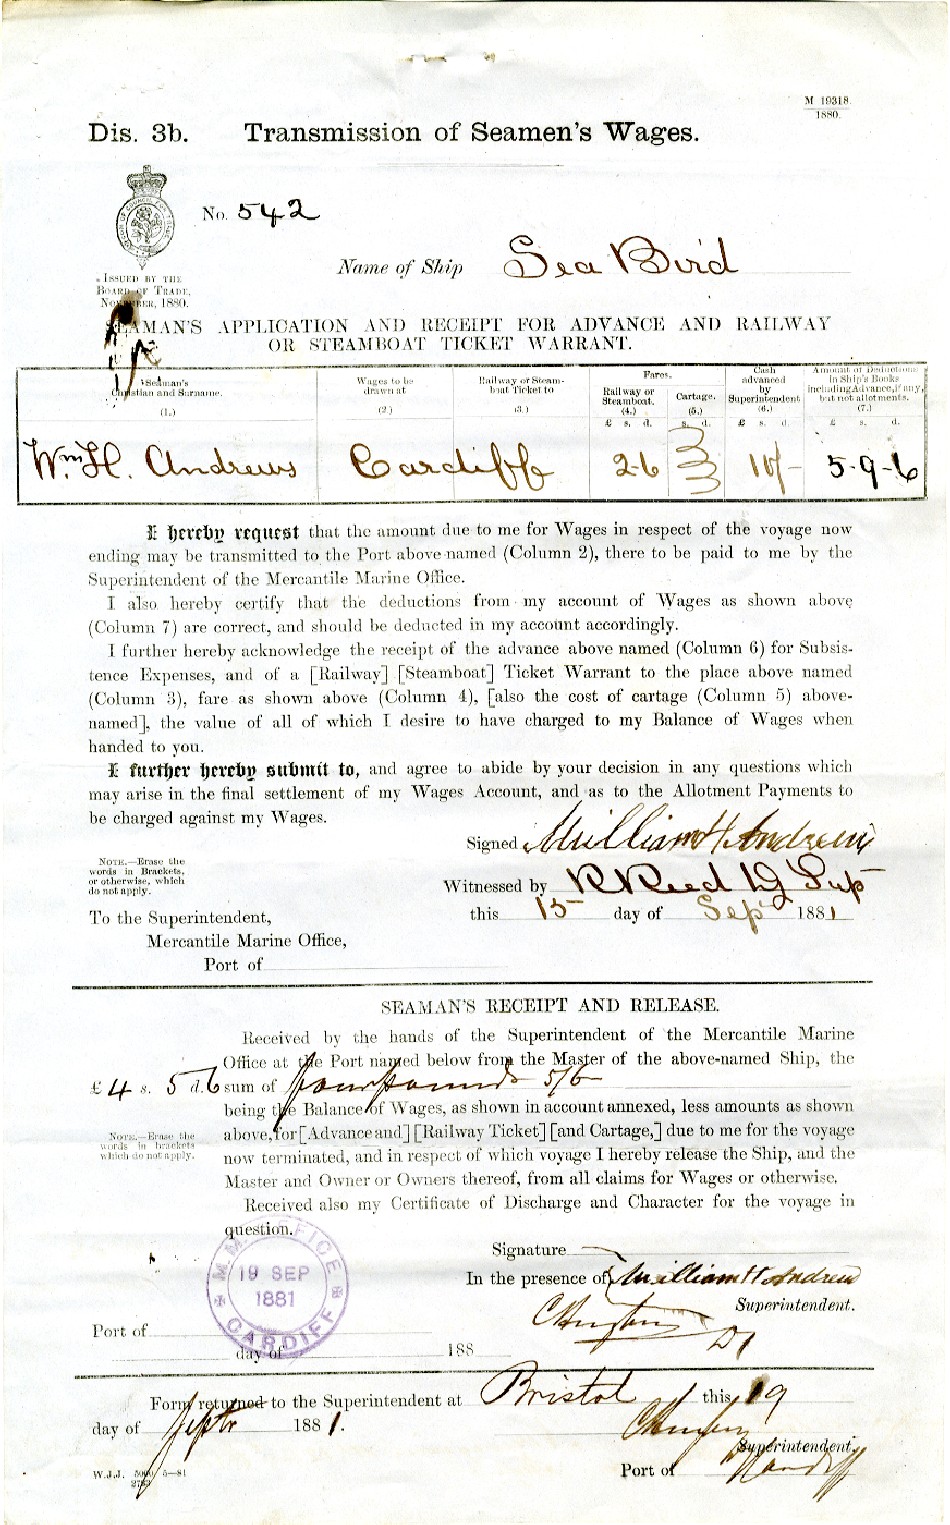 M 19318.
1880.
Dis. 3b. Transmission of Seamen's Wages.
No. 542
Name of Ship Sea Bird
Issued by the
Board of Trade,
November, 1880.
SEAMAN'S APPLICATION AND RECEIPT FOR ADVANCE AND RAILWAY
OR STEAMBOAT TICKET WARRANT.
Seaman's Christian and Surname. (1.) Wages to be drawn at (2.) Railway or Steamboat Ticket to (3.) Fares. Railway or Steamboat. (4.) Cartage. (5.) Cash advanced by Superintendent (6.) Amount of Deductions in Ship's Books including Advance, if any, but not allotments. (7.)
£ s. d. s. d. £ s. d. £ s. d.
Wm. H. Andrews Cardiff 2-6 10/- 5-9-6
I hereby request that the amount due to me for Wages in respect of the voyage now
ending may be transmitted to the Port above-named (Column 2), there to be paid to me by the
Superintendent of the Mercantile Marine Office.
I also hereby certify that the deductions from my account of Wages as shown above
(Column 7) are correct, and should be deducted in my account accordingly.
I further hereby acknowledge the receipt of the advance above named (Column 6) for Subsis-
tence Expenses, and of a [Railway] [Steamboat] Ticket Warrant to the place above named
(Column 3), fare as shown above (Column 4), [also the cost of cartage (Column 5) above-
named], the value of all of which I desire to have charged to my Balance of Wages when
handed to you.
I further hereby submit to, and agree to abide by your decision in any questions which
may arise in the final settlement of my Wages Account, and as to the Allotment Payments to
be charged against my Wages.
Signed William H Andrews
Note.—Erase the
words in Brackets,
or otherwise, which
do not apply.
Witnessed by R Reed Dy Supt
this 15 day of Sept 1881
To the Superintendent,
Mercantile Marine Office,
Port of
SEAMAN'S RECEIPT AND RELEASE.
Received by the hands of the Superintendent of the Mercantile Marine
Office at the Port named below from the Master of the above-named Ship, the
£ 4 s. 5 d. 6 sum of four pounds 5/6
being the Balance of Wages, as shown in account annexed, less amounts as shown
above, for [Advance and] [Railway Ticket] [and Cartage,] due to me for the voyage
now terminated, and in respect of which voyage I hereby release the Ship, and the
Master and Owner or Owners thereof, from all claims for Wages or otherwise.
Note.—Erase the
words in brackets
which do not apply.
Received also my Certificate of Discharge and Character for the voyage in
question.
Signature
In the presence of William H Andrews
Superintendent.
M. M. OFFICE
19 SEP
1881
CARDIFF
Port of
day of 188
Form returned to the Superintendent at Bristol this 19
day of Septr 1881.
Superintendent.
Port of Cardiff
W.J.J. 5—81